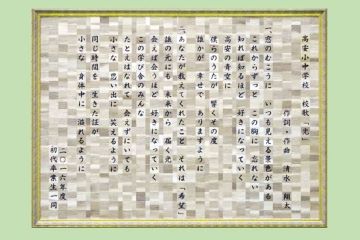 高安小中学校 校歌「光」
作詞・作曲 清水 翔太
一、窓のむこうに いつも見える景色がある
これからずっと この胸に 忘れない
知れば知るほど 好きになっていく
高安の青空に
僕らのうたが 響くその度
誰かが 幸せで ありますように
二、あなたが教えてくれたこと それは「希望」
誰の元にも 未来から 届く光
会えば会うほど 好きになっていく
この学び舎のみんな
たとえはなれて 会えずにいても
小さな思い出に 笑えるように
同じ時間を 生きた証が
小さな 身体中に 溢れるように
二〇一六年度
初代卒業生一同